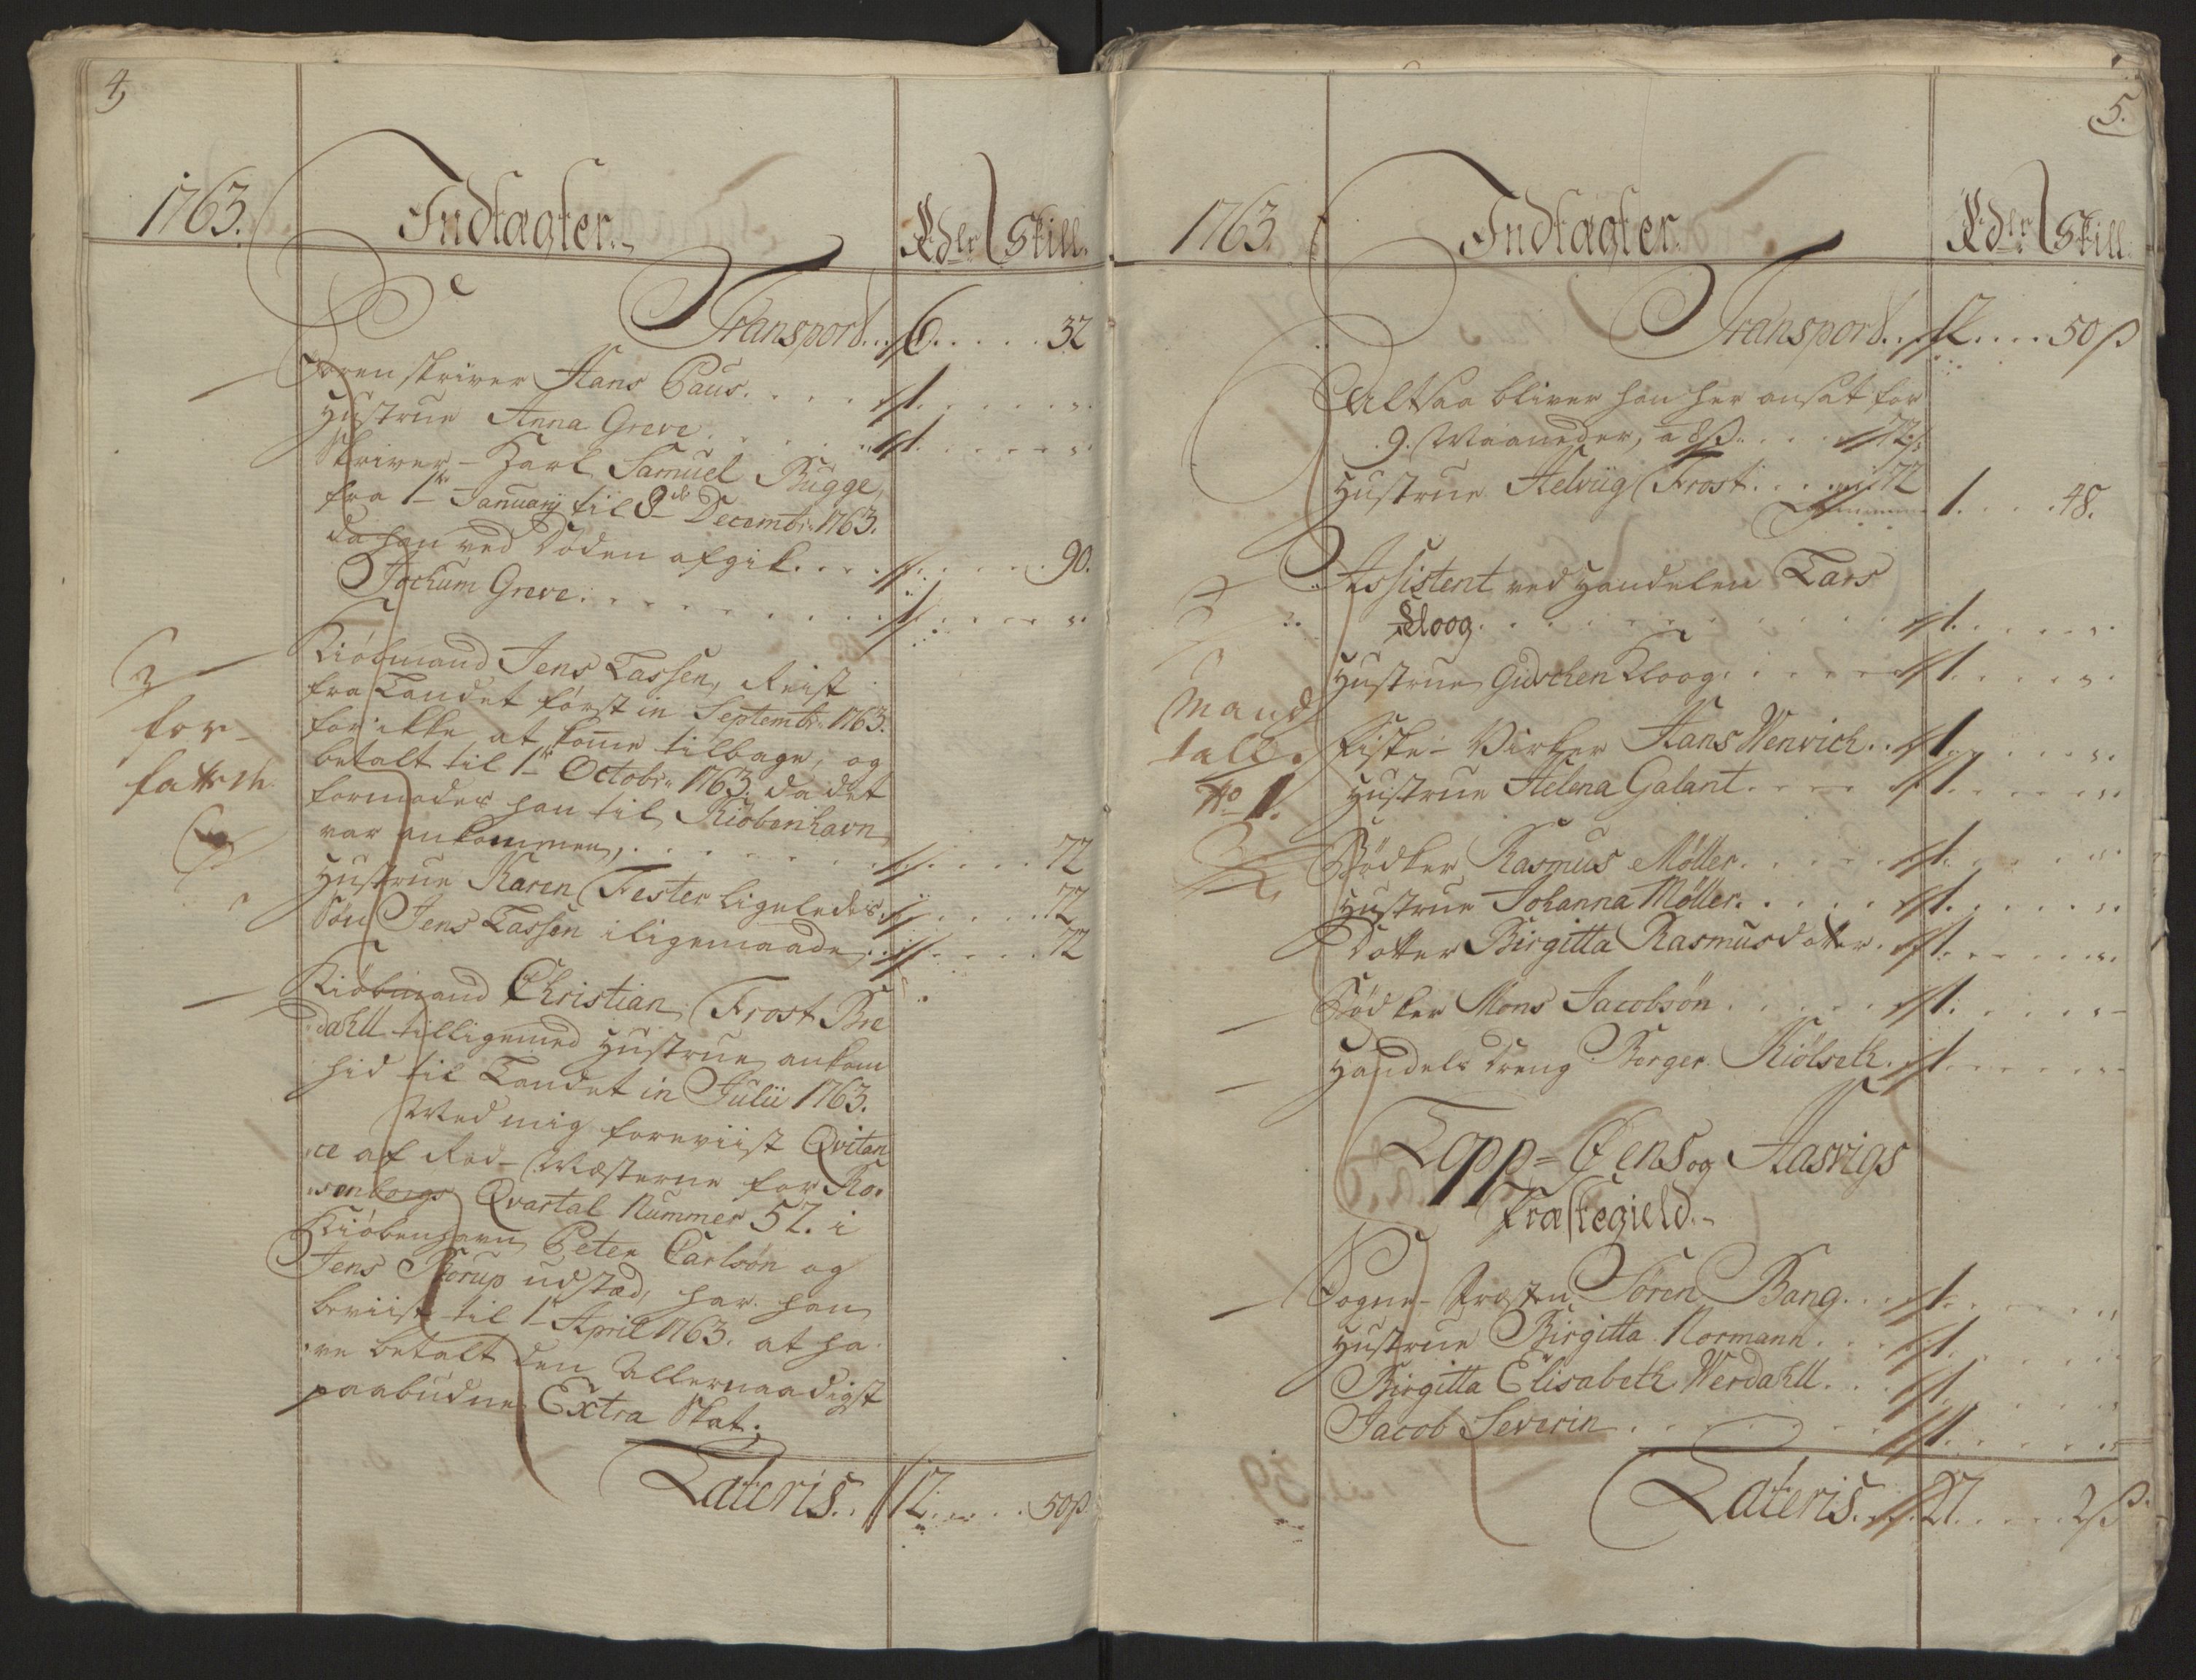 4,
1763. Indtægter. Rdlr Skill.
Transport.. 6. .... 32
Soren skriver Hans Paus. .... 1. .....
Hustrue Anna Greve. .... 1. .....
Skriver-Karl Samuel Bugge,
fra 1te Januarij til 8de Decembr: 1763.
da han ved Döden afgik. ... 90.
Jochum Greve. ..... 1. ....
Kiöbmand Jens Lassen, Reist
fra Landet först in Septembr: 1763.
for ikke at komme tilbage, og
betalt til 1te Octobr: 1763. da det
formodes han til Kiöbenhavn
var ankommen, ..... 72
Hustrue Karen Fester ligeledes. .... 72
Sön Jens Lassen i ligemaade, .... 72
Kiöbmand Christian Frost Bre
dahll tilligemed Hustrue ankom
hid til Landet in Julii 1763.
Med mig foreviist Qvitan
ce af Rod-Mesterne for Ro,
senborgs Qvartal Nummer 52. i
Kiöbenhavn Peter Carlsön og
Jens Storup udstæd, har han
beviist til 1te April 1763. at ha
ve betalt den Allernaadigst
paabudne Extra Skat.
Lateris. 12. ... 50ß
5.
1763. Indtægter. Rdlr Skill.
Transport.. 12. ... 50ß
Altsaa bliver han her ansat for
9. Maaneder, a 8ß. ... 72.
Hustrue Helviig Frost. ... 72
1. ... 48.
Assistent ved Handelen Lars
Kloog. ..... 1. ....
Hustrue Gurchen Kloog. .... 1. ....
Mand
tall.
No 1.
Fiske-Virker Hans Wenrich.. 1. ....
Hustrue Helena Galant. ... 1. ....
Bödker Rasmus Möller. ... 1. ....
Hustrue Johanna Möller. ... 1. ....
Dotter Birgitta Rasmusdatter. 1. ....
Bödker Mons Jacobsön. ... 1. ....
Handels Dreng Borger Kiölseth. 1. ....
Lopp-Öens og Hasvigs
Præstegield.
Sogne-Præsten Sören Bang. .. 1. ....
Hustrue Birgitta Normann. .. 1. ....
Birgitta Elisabeth Werdahll. .. 1. ....
Jacob Severin. .... 1. ....
Lateris. 27. .... 2ß.